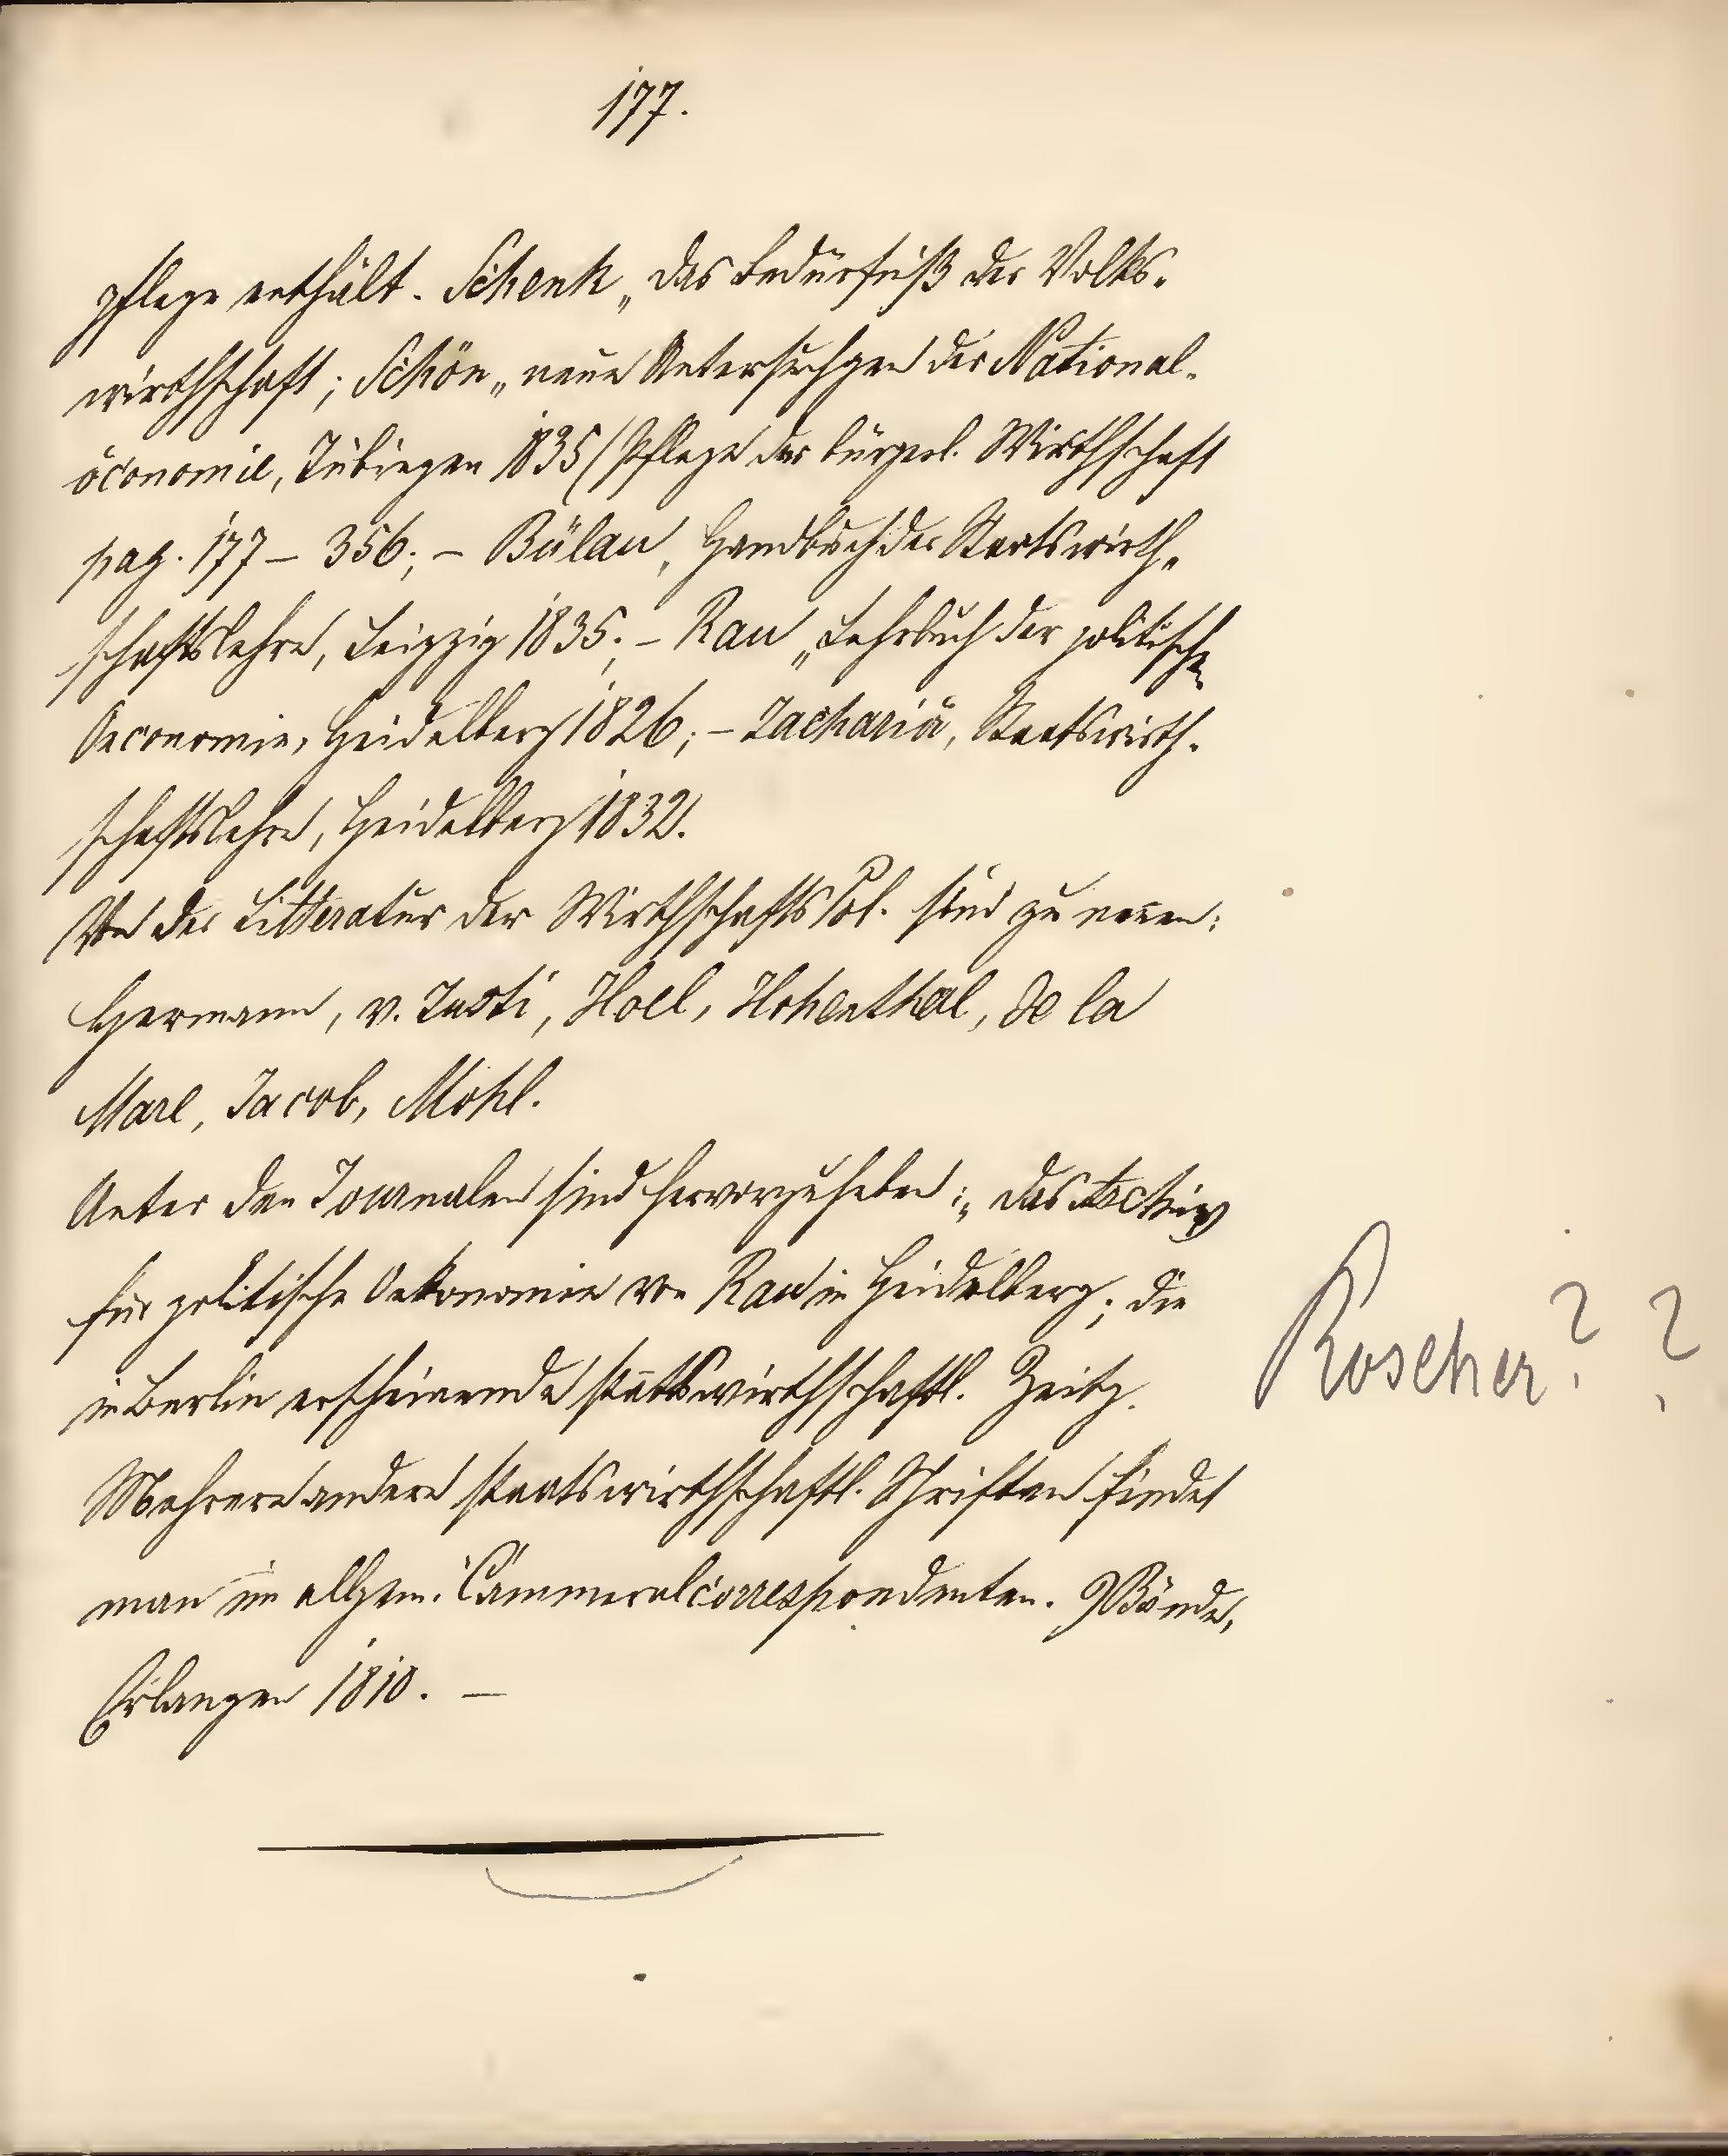 177.
pflege enthält. Schenk „das Bedürfniß der Volks-
wirthschaft; Schön „neue Untersuchgen der National-
öconomie, Tübingen 1835 (Pflege der bürgerl. Wirthschaft
pag. 177 – 356; – Bülau, Handbuch der Staatswirth-
schaftslehre, Leipzig 1835; – Rau „Lehrbuch der politischen
Oeconomie, Heidelberg 1826; – Zachariä, Staatswirth-
schaftslehre, Heidelberg 1832.
Von der Litteratur der WirthschaftsPol. sind zu nennen:
Hermann, v. Justi, Hoel, Hohenthal, de la
Mare, Jacob, Mohl.
Unter den Journalen sind hervorzuheben: „das Archiv
für politische Oekonomie von Rau in Heidelberg; die
in Berlin erscheinende staatswirthschaftl. Zeitg.
Roscher? ?
Mehrere andere staatswirthschaftl. Schriften findet
man im allgem. Cammeralcorrespondenten. 9 Bände,
Erlangen 1810. –